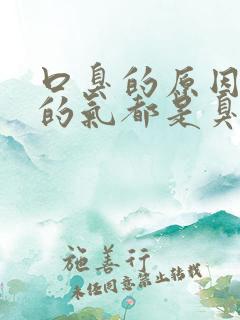 口臭的原因
的氣都是臭
施善行
未经同意禁止转载